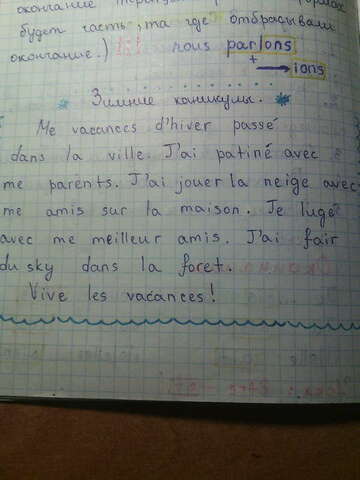 окончание
будет часть, та где отбрасывали
окончание.) nous parlons
+
ions
Зимние каникулы.
Me vacances d'hiver passé
dans la ville. J'ai patiné avec
me parents. J'ai jouer la neige avec
me amis sur la maison. Je luge
avec me meilleur amis. J'ai fair
du sky dans la foret.
Vive les vacances!